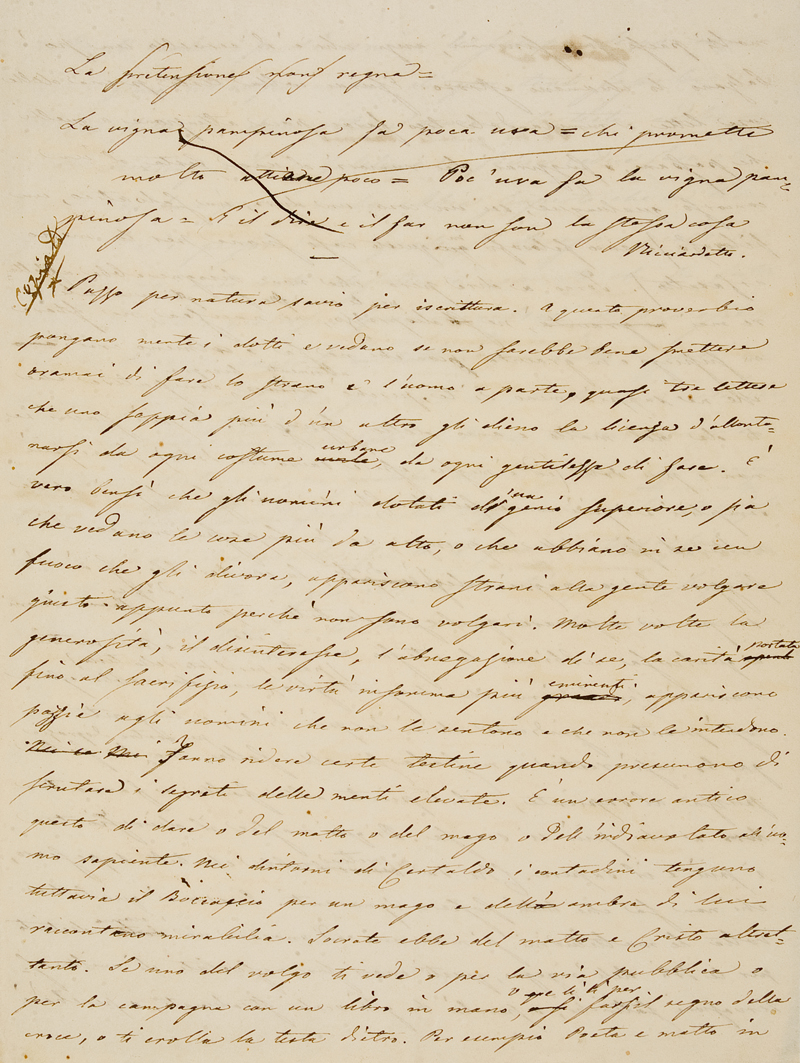 La pretensione non regna =
La vigna pampinosa fa poca uva = chi promette
molto attiene poco = Poc' uva fa la vigna pam-
pinosa = il dire e il far non son la stessa cosa
Ricciardetto.
Copiato
Pazzo per natura savio per iscrittura. A questo proverbio
pongano mente i dotti e vedano se non sarebbe bene smettere
oramai di fare lo strano e l'uomo a parte, quasi tre lettere
che uno sappia più d'un altro gli dieno la licenza d'allonta-
narsi da ogni costume urbano, da ogni gentilezza di fare. È
vero bensì che gli uomini dotati d'un genio superiore, o sia
che vedano le cose più da alto, o che abbiano in se un
fuoco che gli divora, appariscono strani alla gente volgare
giusto appunto perchè non sono volgari. Molte volte la
generosità, il disinteresse, l'abnegazione di se, la carità portata
fino al sacrifizio, le virtù insomma più eminenti, appariscono
pazzie agli uomini che non le sentono e che non le intendono.
Fanno ridere certe testine quando presumono di
scrutare i segreti delle menti elevate. È un errore antico
questo di dare o del matto o del mago o dell'indiavolato all'uo-
mo sapiente. Nei dintorni di Certaldo i contadini tengono
tuttavia il Boccaccio per un mago e dell'ombra di lui
raccontano mirabilia. Socrate ebbe del matto e Cristo altret-
tanto. Se uno del volgo ti vede o per la via pubblica o
per la campagna con un libro in mano, o che ti si fa il segno della
croce, o ti crolla la testa dietro. Per esempio Poeta e matto in